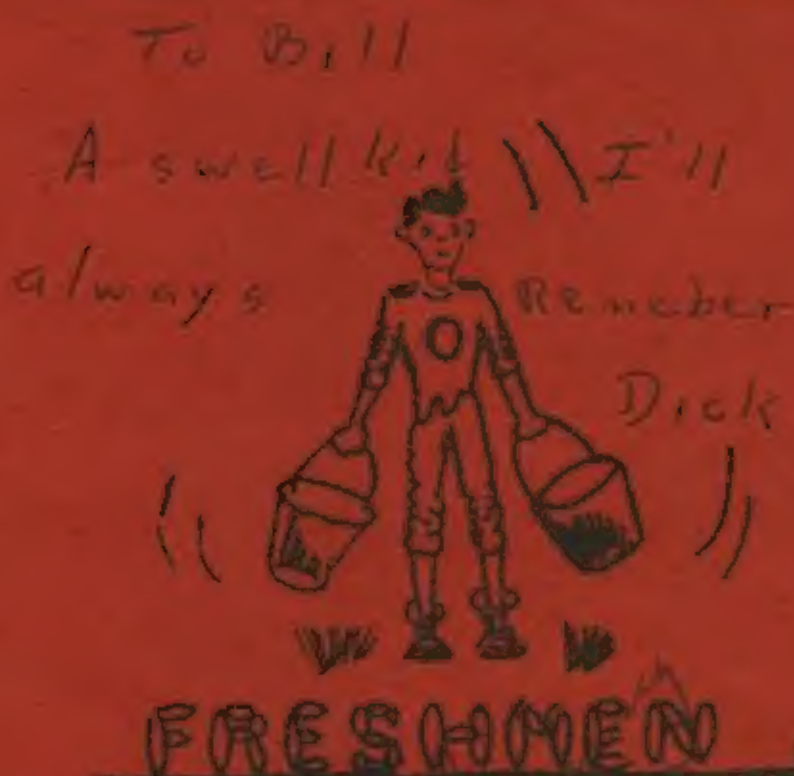 To Bill
A swell kid I'll
always Remeber
Dick
O
FRESHMEN